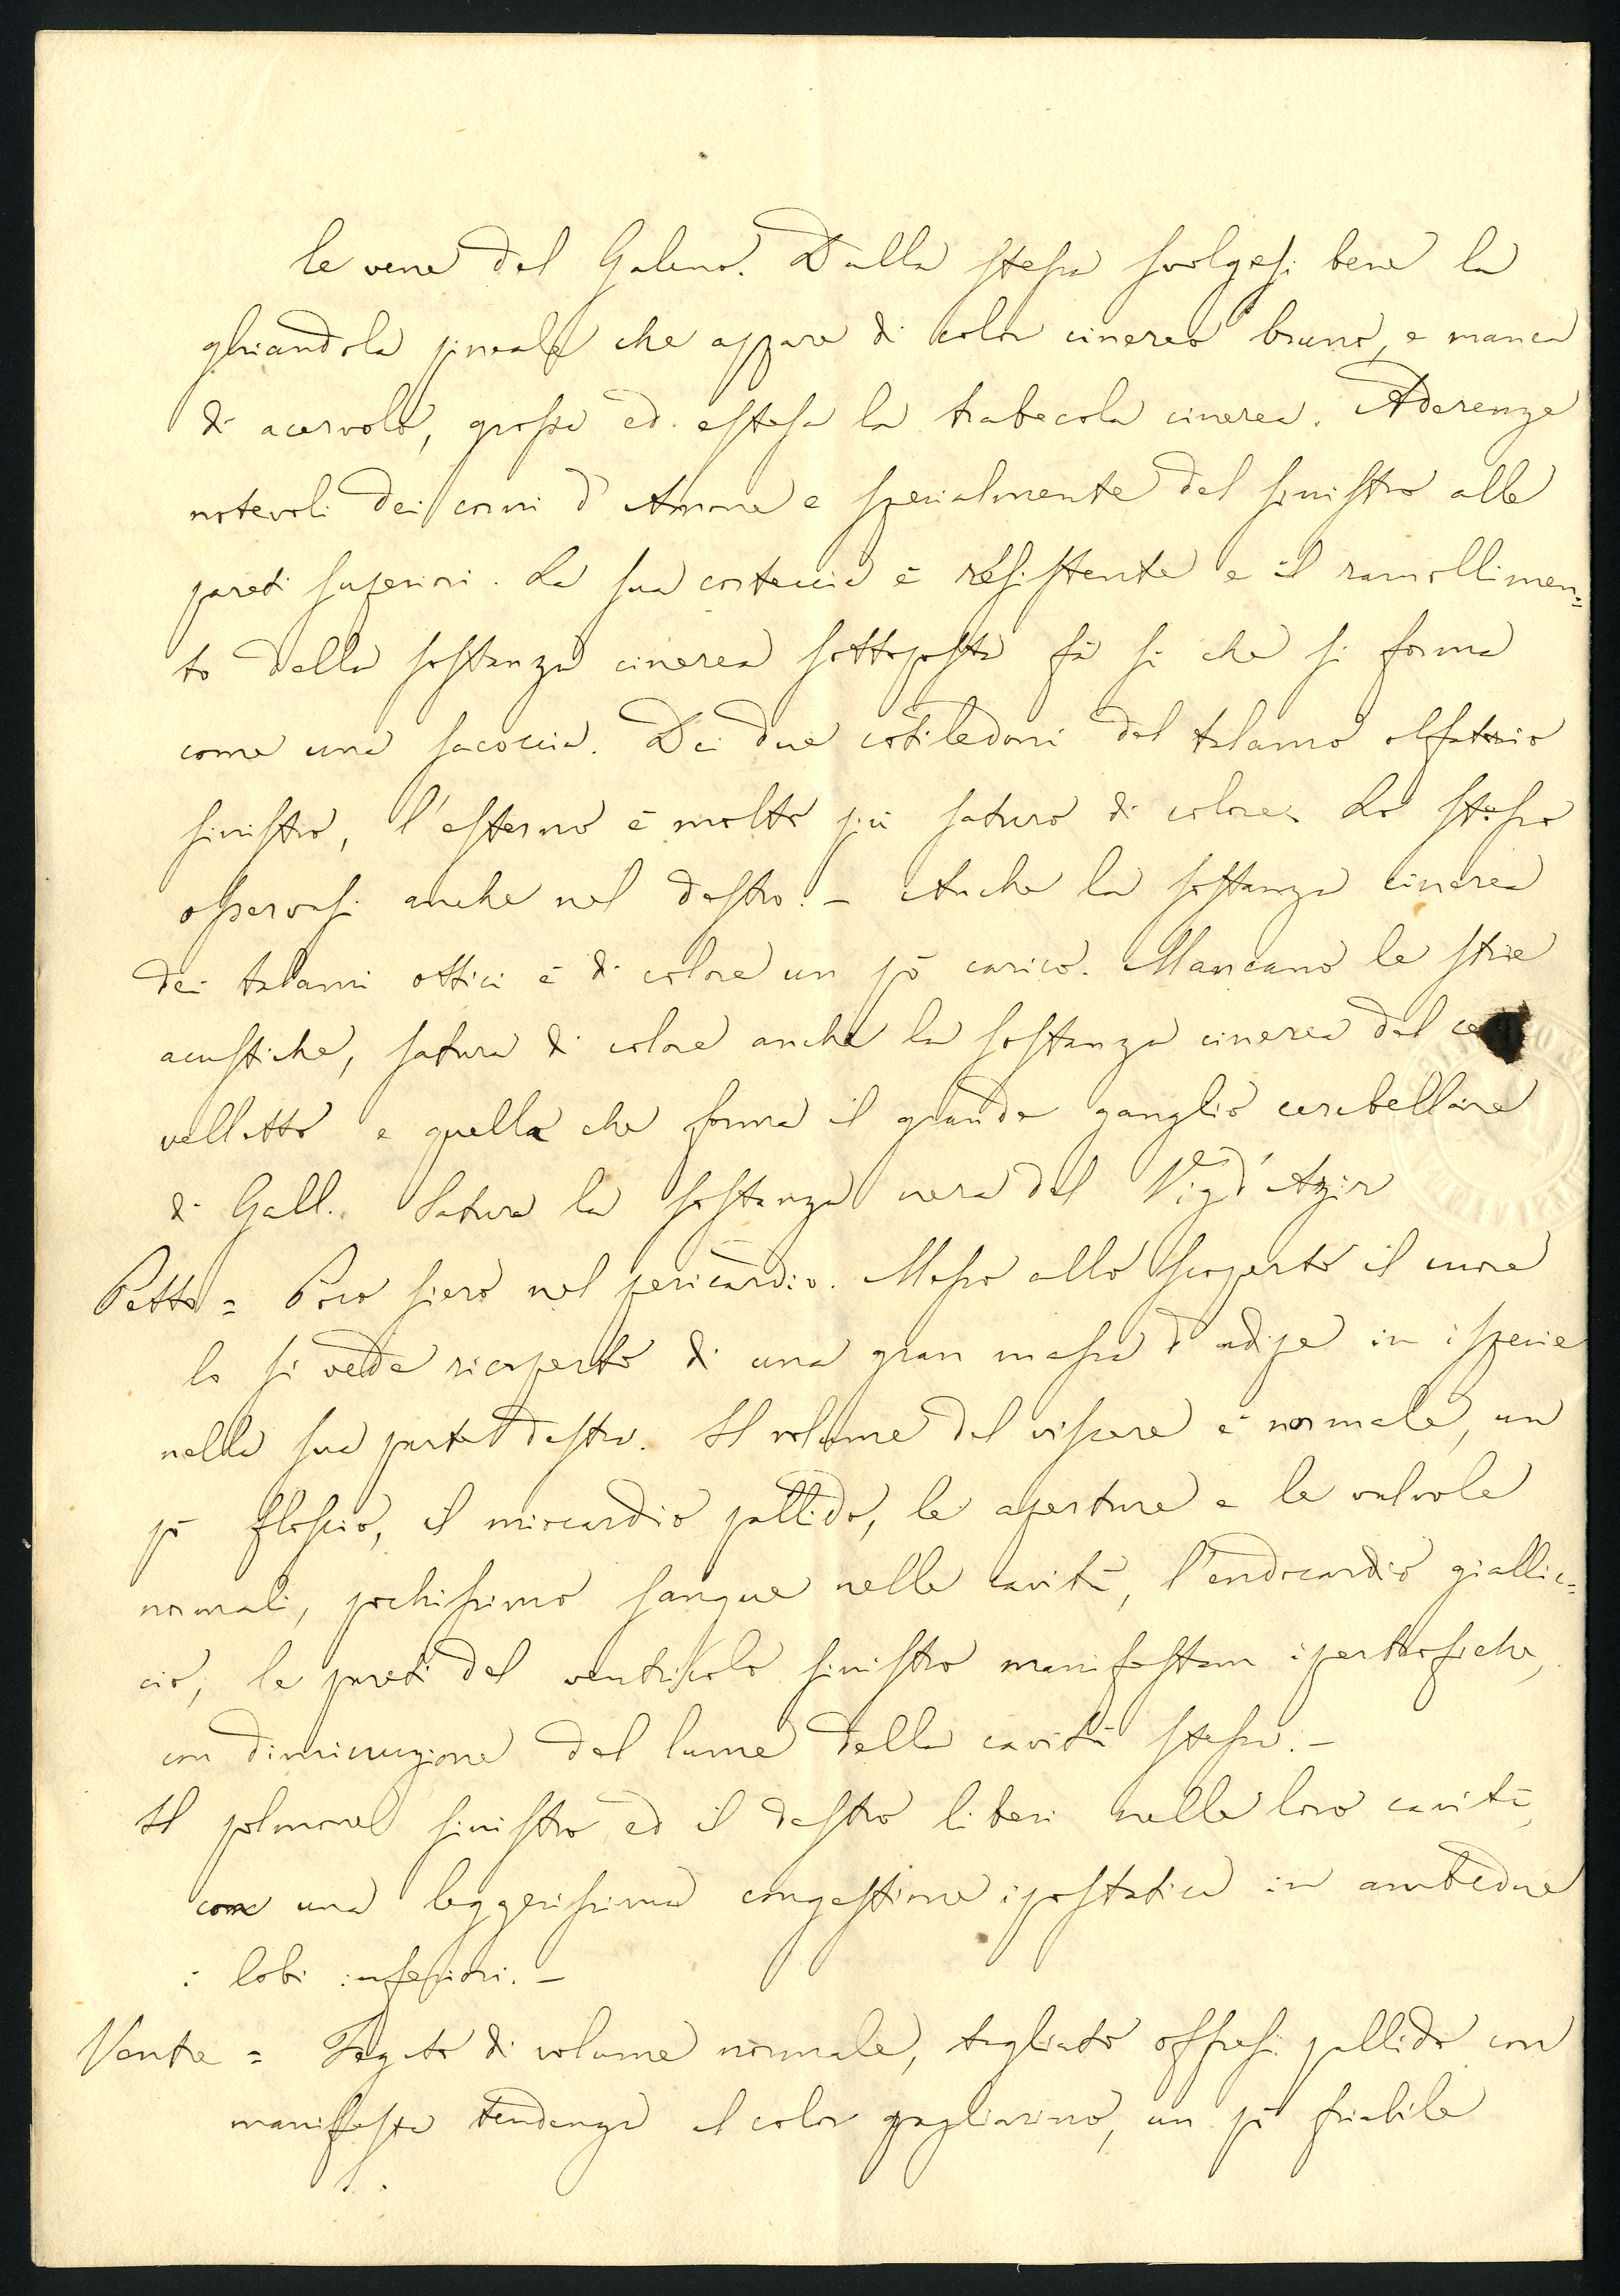 le vene del Galeno. Dalla stessa svolgesi bene la
ghiandola pineale che appare di color cinereo bruno, e manca
di acervolo, grossa ed estesa la trabecola cinerea. Aderenze
notevoli dei corni d'Amone e specialmente del sinistro alle
pareti superiori. La sua corteccia è resistente e il ramollimen=
to della sostanza cinerea sottoposta fà si che si forma
come una sacoccia. Dei due cotiledoni del talamo olfatorio
sinistro, l'esterno è molto più saturo di colore. Lo stesso
osservasi anche nel destro. — Anche la sostanza cinerea
dei talami ottici è di colore un pò carico. Mancano le strie
acustiche, satura di colore anche la sostanza cinerea del cer
velletto e quella che forma il grande ganglio cerebellare
di Gall. Satura la sostanza nera del Vicq d'Azir
Petto = Poco siero nel pericardio. Messo allo scoperto il cuore
lo si vede ricoperto di una gran massa d'adipe in ispecie
nella sua parte destra. Il volume del viscere è normale, un
pò floscio, il miocardio pallido, le aperture e le valvole
normali, pochissimo sangue nelle cavità, l'endocardio giallic=
cio, le pareti del ventricolo sinistro manifestam ipertrofiche,
con diminuzione del lume della cavità stessa. —
Il polmone sinistro ed il destro liberi nelle loro cavità,
con una leggerissima congestione ipostatica in ambedue
i lobi inferiori. —
Ventre = Fegato di volume normale, tagliato offresi pallido con
manifesta tendenza al color pagliarino, un pò friabile